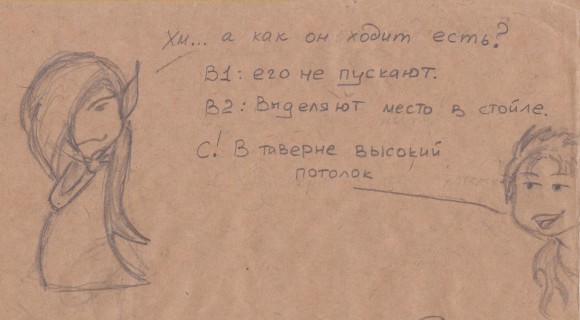 Хм... а как он ходит есть?
В1: его не пускают.
В2: Выделяют место в стойле.
С! В таверне высокий
потолок